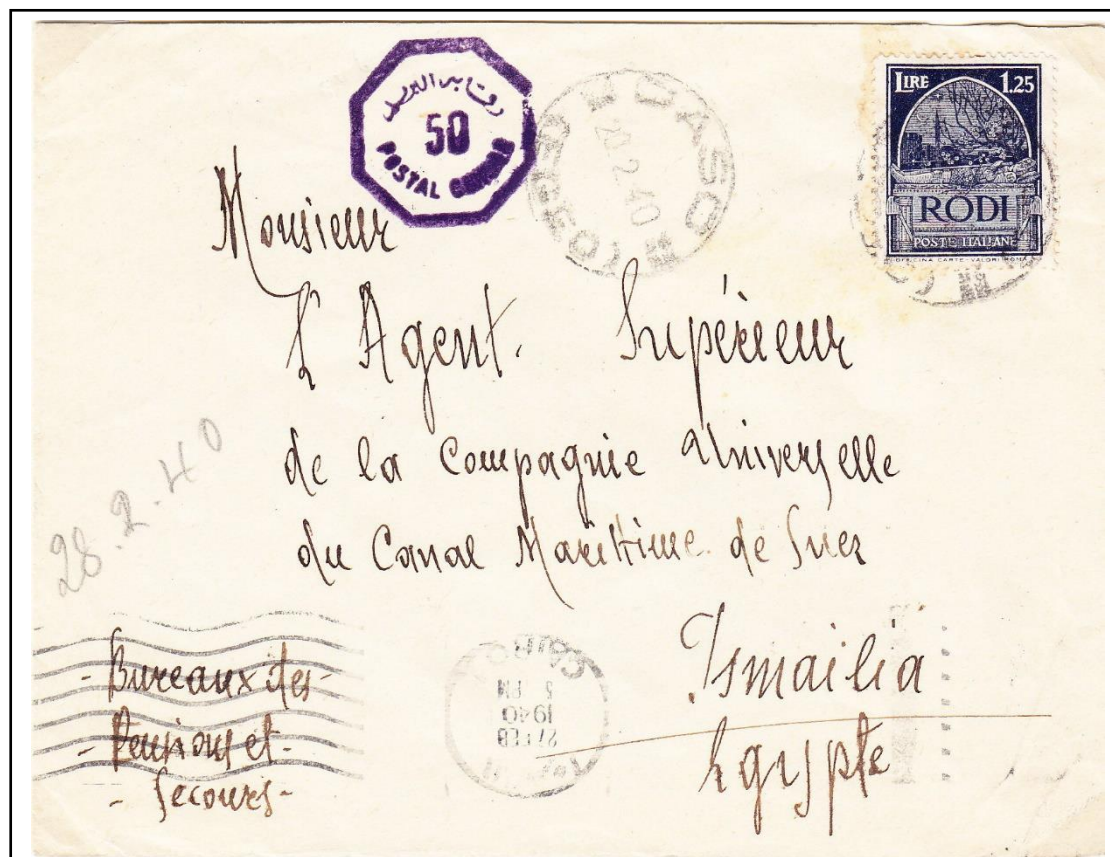 رقابة البريد
50
POSTAL CENSOR
CASO
20.2.40
(EGEO)
LIRE 1.25
RODI
POSTE ITALIANE
OFFICINA CARTE-VALORI ROMA
Monsieur
L'Agent Supérieur
de la Compagnie Universelle
du Canal Maritime de Suez
Ismailia
Egypte
28.2.40
- Bureaux des -
- Pensions et -
- Secours -
CAIRO
5 PM
1940
27 FEB